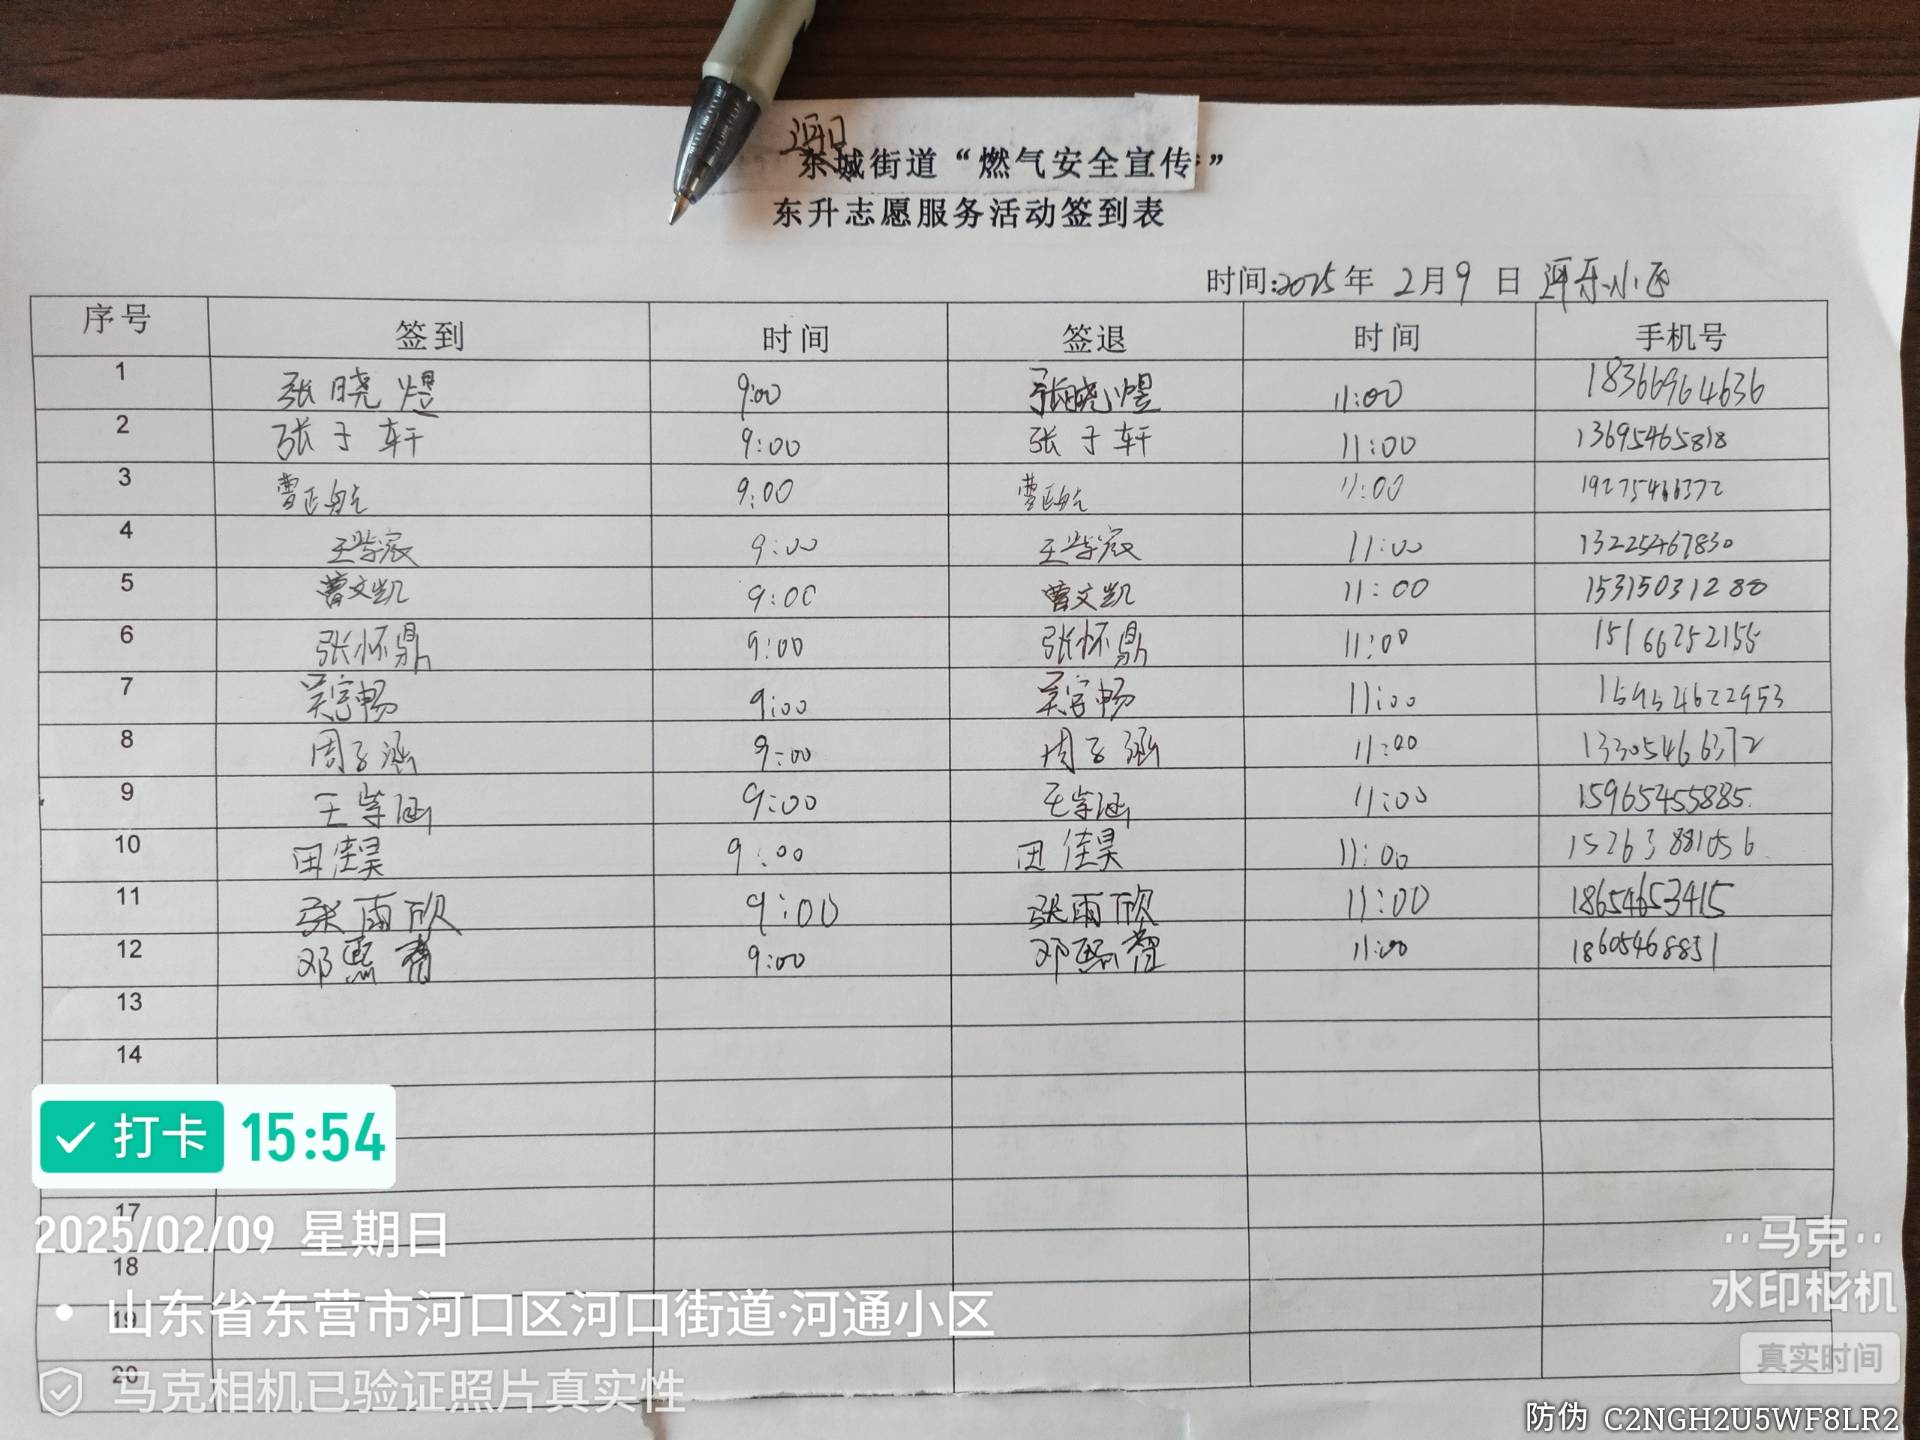 河口
东城街道“燃气安全宣传”
东升志愿服务活动签到表
时间:2025年 2月9 日 河乐小区
序号 签到 时间 签退 时间 手机号
1 张晓煜 9:00 张晓煜 11:00 18366964636
2 张子轩 9:00 张子轩 11:00 13695465818
3 曹正航 9:00 曹正航 11:00 19275466372
4 王紫宸 9:00 王紫宸 11:00 13225467830
5 曹文凯 9:00 曹文凯 11:00 15315031280
6 张怀鼎 9:00 张怀鼎 11:00 15166252155
7 吴宇畅 9:00 吴宇畅 11:00 159524622953
8 周子涵 9:00 周子涵 11:00 13305466372
9 王学涵 9:00 王学涵 11:00 15965455885
10 田佳昊 9:00 田佳昊 11:00 15263881056
11 张雨欣 9:00 张雨欣 11:00 18654653415
12 邓熙 9:00 邓熙 11:00 18605468851
13
14
打卡 15:54
17
2025/02/09 星期日
18
19
山东省东营市河口区河口街道·河通小区
20
马克相机已验证照片真实性
马克
水印相机
真实时间
防伪 C2NGH2U5WF8LR2